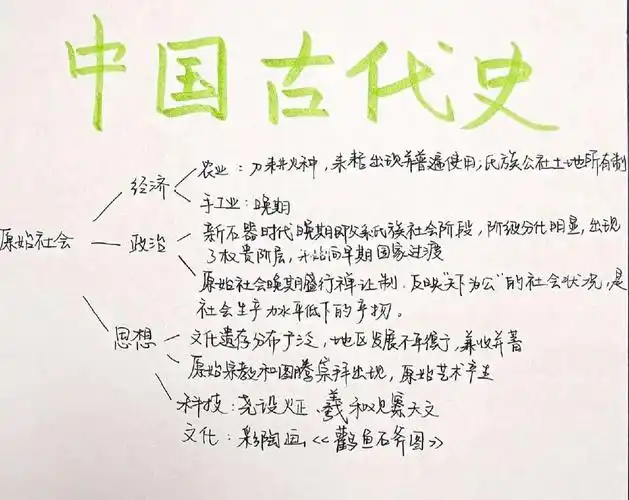 中国古代史
农业：刀耕火种，耒耜出现并普遍使用；氏族公社土地所有制
经济
手工业：晚期
原始社会
政治
新石器时代晚期即父系氏族社会阶段，阶级分化明显，出现
了权贵阶层，开始向早期国家过渡
原始社会晚期盛行禅让制，反映"天下为公"的社会状况，是
社会生产力水平低下的产物。
思想
文化遗存分布广泛，地区发展不平衡，兼收并蓄
原始宗教和图腾崇拜出现，原始艺术产生
科技：尧设火正、羲和观察天文
文化：彩陶画，《鹳鱼石斧图》